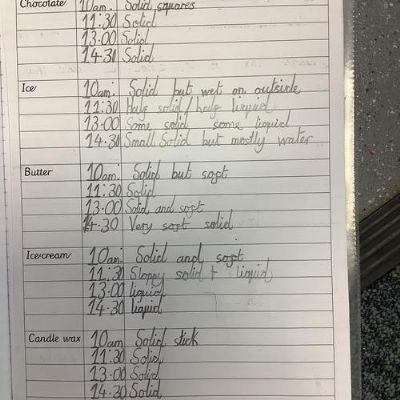 Chocolate 10am: Solid squares
11:30 Solid
13:00 Solid
14:30 Solid
Ice 10am: Solid but wet on outside
11:30 Half solid/half liquid
13:00 Some solid some liquid
14:30 Small Solid but mostly water
Butter 10am: Solid but soft
11:30 Solid
13:00 Solid and soft
14:30 Very soft solid
Ice-cream 10am: Solid and soft
11:30 Sloppy solid + liquid
13:00 liquid
14:30 liquid
Candle wax 10am Solid stick
11:30 Solid
13:00 Solid
14:30 Solid